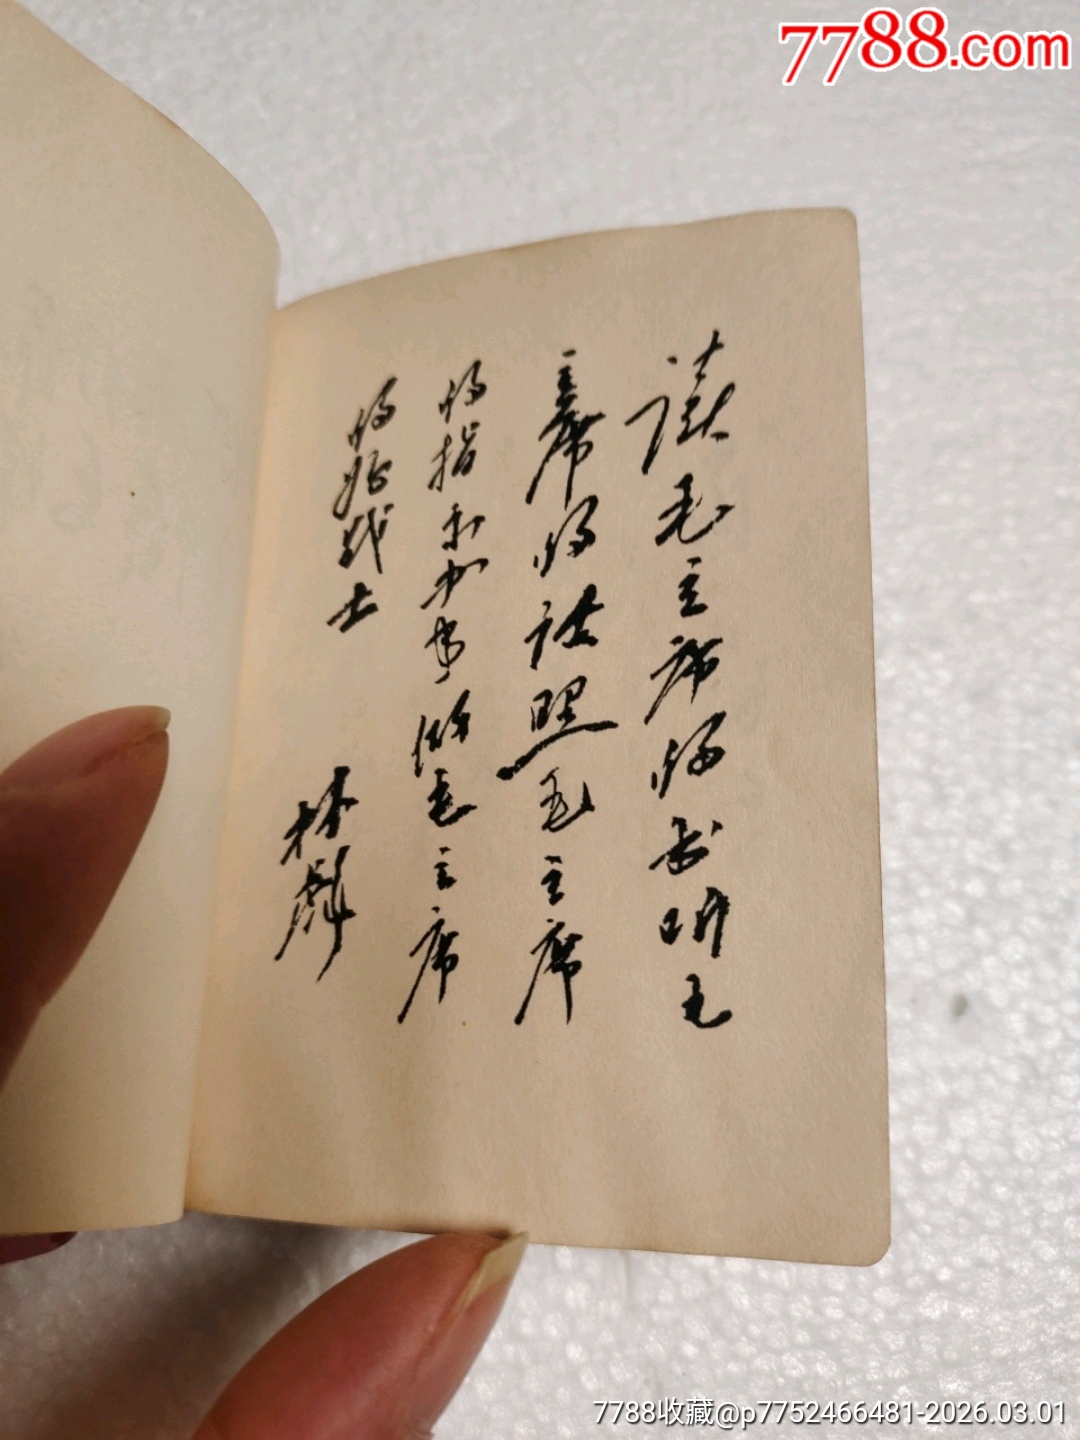 7788.com
读毛主席的书听毛
主席的话照毛主席
的指示办事做毛主席
的好战士
林彪
7788收藏@p7752466481-2026.03.01